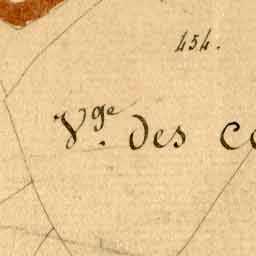 454.
Vge. des